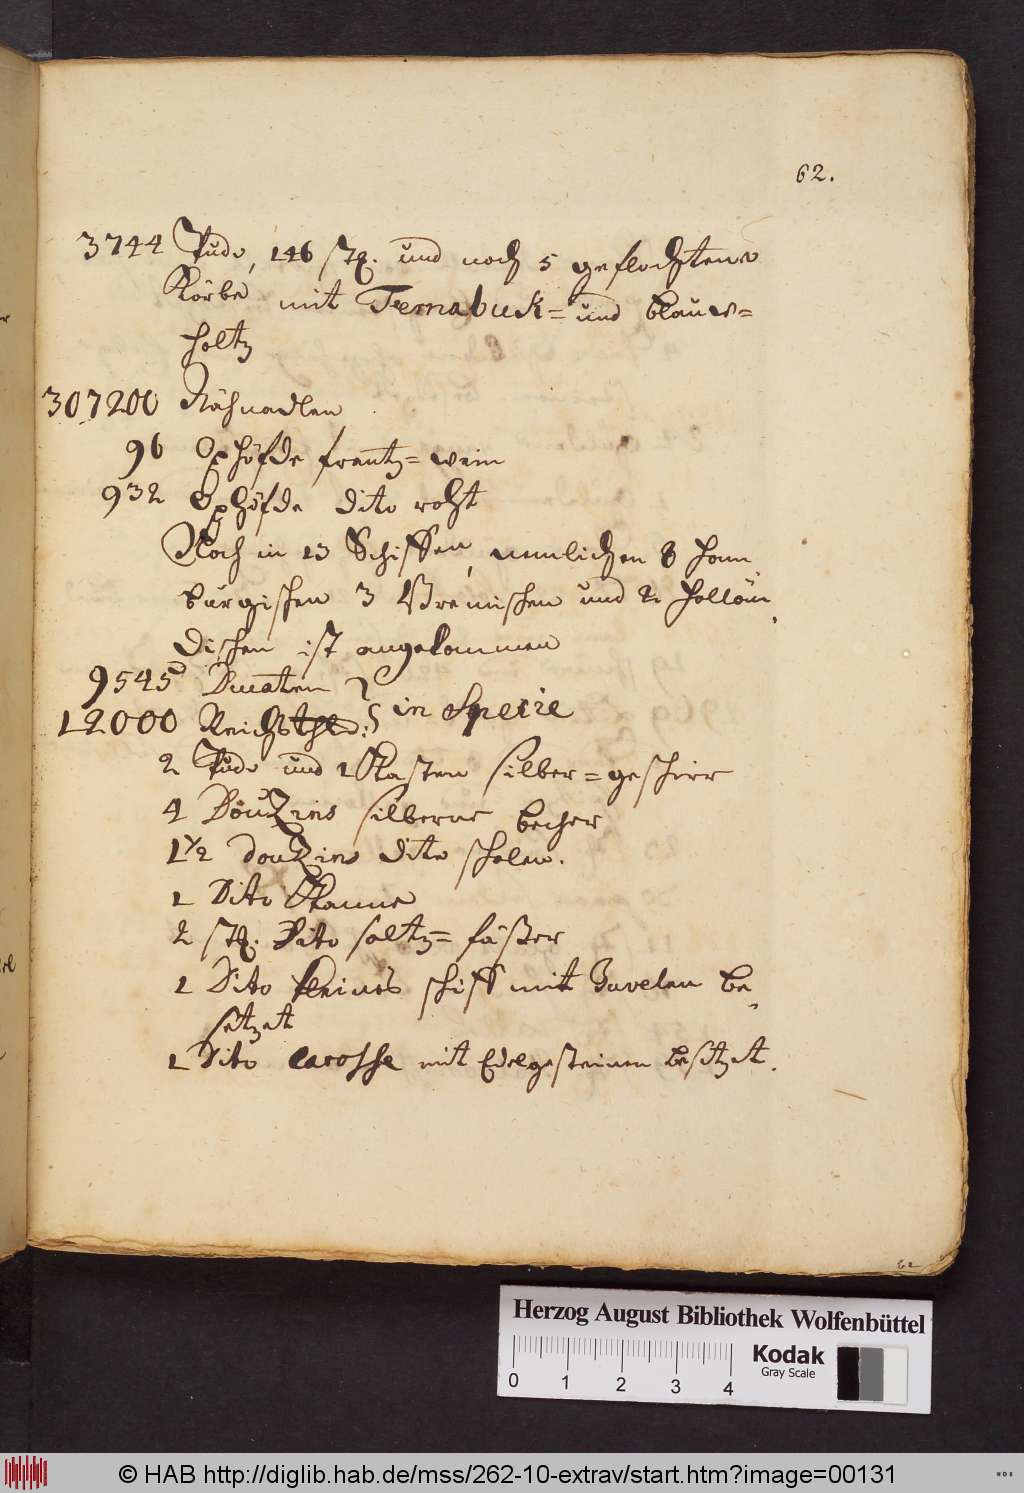 62.
3744 Pude, 146 stk. und noch 5 geflochtene
Körbe mit Fernabuck= und blau=
holtz
307200 Nähnadlen
96 Oxhöfde frantz=wein
932 Oxhöfde dito roht
Noch in 13 Schiffen, nemlichen 8 ham,
burgischen 3 Bremischen und 2 hollän,
dischen ist angekommen
9545 Ducaten
12000 Reichsthl: in Specie
2 Pude und 1 Kasten silber=geschirr
4 Douzins silberne becher
1 1/2 douzins dito schalen.
1 Dito Kanne
2 stk. Dito saltz=fäßer
1 Dito kleines schiff mit Juvelen be,
setzet
1 Dito Carosse mit Edelgesteinen besetzet.
62
Herzog August Bibliothek Wolfenbüttel
0 1 2 3 4
Kodak
Gray Scale
© HAB http://diglib.hab.de/mss/262-10-extrav/start.htm?image=00131